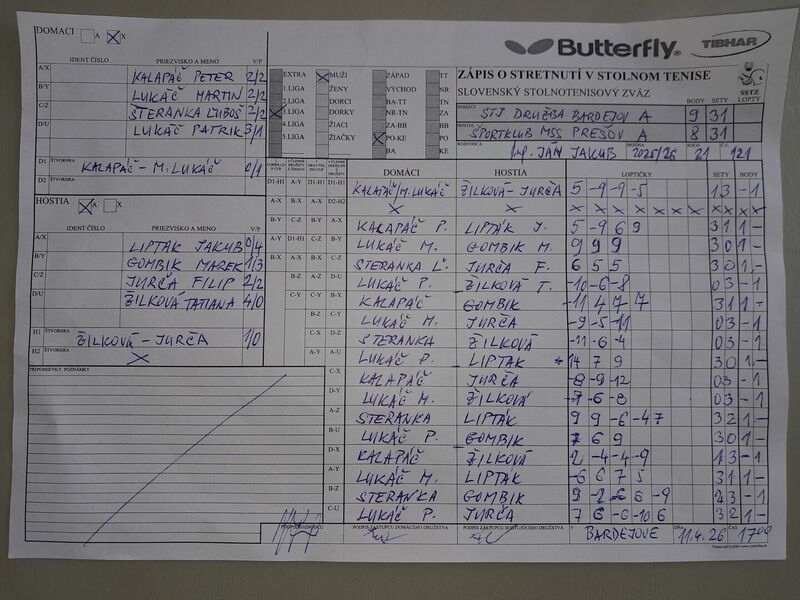 DOMACI A X
Butterfly TIBHAR
IDENT.ČÍSLO PRIEZVISKO A MENO V/P
A/X KALAPÁČ PETER 2/2
B/Y LUKÁČ MARTIN 2/2
C/Z ŠTERANKA ĽUBOŠ 2/2
D/U LUKÁČ PATRIK 3/1
D1 ŠTVORHRA KALAPÁČ - M. LUKÁČ 0/1
D2 ŠTVORHRA
HOSTIA A X
IDENT.ČÍSLO PRIEZVISKO A MENO V/P
A/X LIPTÁK JAKUB 0/4
B/Y GOMBIK MAREK 1/3
C/Z JURČA FILIP 2/2
D/U ŽILKOVÁ TATIANA 4/0
H1 ŠTVORHRA ŽILKOVÁ - JURČA 1/0
H2 ŠTVORHRA X
PRIPOMIENKY, POZNÁMKY
EXTRA MUŽI ZÁPAD TT
1.LIGA ŽENY VÝCHOD NR
2.LIGA DORCI BA-TT TN
3.LIGA DORKY NR-TN ZA
4.LIGA ŽIACI ZA-BB BB
5.LIGA ŽIAČKY PO-KE PO
BA KE
ZÁPIS O STRETNUTÍ V STOLNOM TENISE
SLOVENSKÝ STOLNOTENISOVÝ ZVÄZ
SSTZ
BODY SETY LOPTY
DOMÁCI STJ DRUŽBA BARDEJOV A 9 31
HOSTIA ŠPORTKLUB MŠŠ PREŠOV A 8 31
ROZHODCA JÁN JAKUB SEZÓNA 2025/26 KOLO 21 Č. 121
DOMÁCI HOSTIA LOPTIČKY SETY BODY
D1-H1 KALAPÁČ/M.LUKÁČ ŽILKOVÁ-JURČA 5 -9 -9 -5 1 3 - 1
D2-H2 X X X X X X X X X X X X
A-X KALAPÁČ P. LIPTÁK J. 5 -9 6 9 3 1 1 -
B-Y LUKÁČ M. GOMBIK M. 9 9 9 3 0 1 -
C-Z ŠTERANKA Ľ. JURČA F. 6 5 5 3 0 1 -
D-U LUKÁČ P. ŽILKOVÁ T. -10 -6 -8 0 3 - 1
KALAPÁČ GOMBIK -11 4 7 7 3 1 1 -
LUKÁČ M. JURČA -9 -5 -11 0 3 - 1
D-Z ŠTERANKA ŽILKOVÁ -11 -6 -4 0 3 - 1
A-U LUKÁČ P. LIPTÁK 14 7 9 3 0 1 -
C-X KALAPÁČ JURČA -8 -9 -12 0 3 - 1
D-Y LUKÁČ M. ŽILKOVÁ -7 -6 -8 0 3 - 1
A-Z ŠTERANKA LIPTÁK 9 9 -6 -4 7 3 2 1 -
B-U LUKÁČ P. GOMBIK 7 6 9 3 0 1 -
D-X KALAPÁČ ŽILKOVÁ 2 -4 -4 -9 1 3 - 1
A-Y LUKÁČ M. LIPTÁK -6 6 7 5 3 1 1 -
B-Z ŠTERANKA GOMBIK 9 -2 6 -9 2 3 - 1
C-U LUKÁČ P. JURČA 7 6 -6 -10 6 3 2 1 -
PODPIS ROZHODCU PODPIS ZÁSTUPCU DOMÁCEHO DRUŽSTVA PODPIS ZÁSTUPCU HOSŤUJÚCEHO DRUŽSTVA V BARDEJOVE DŇA 11.4.26 ČAS 17:00